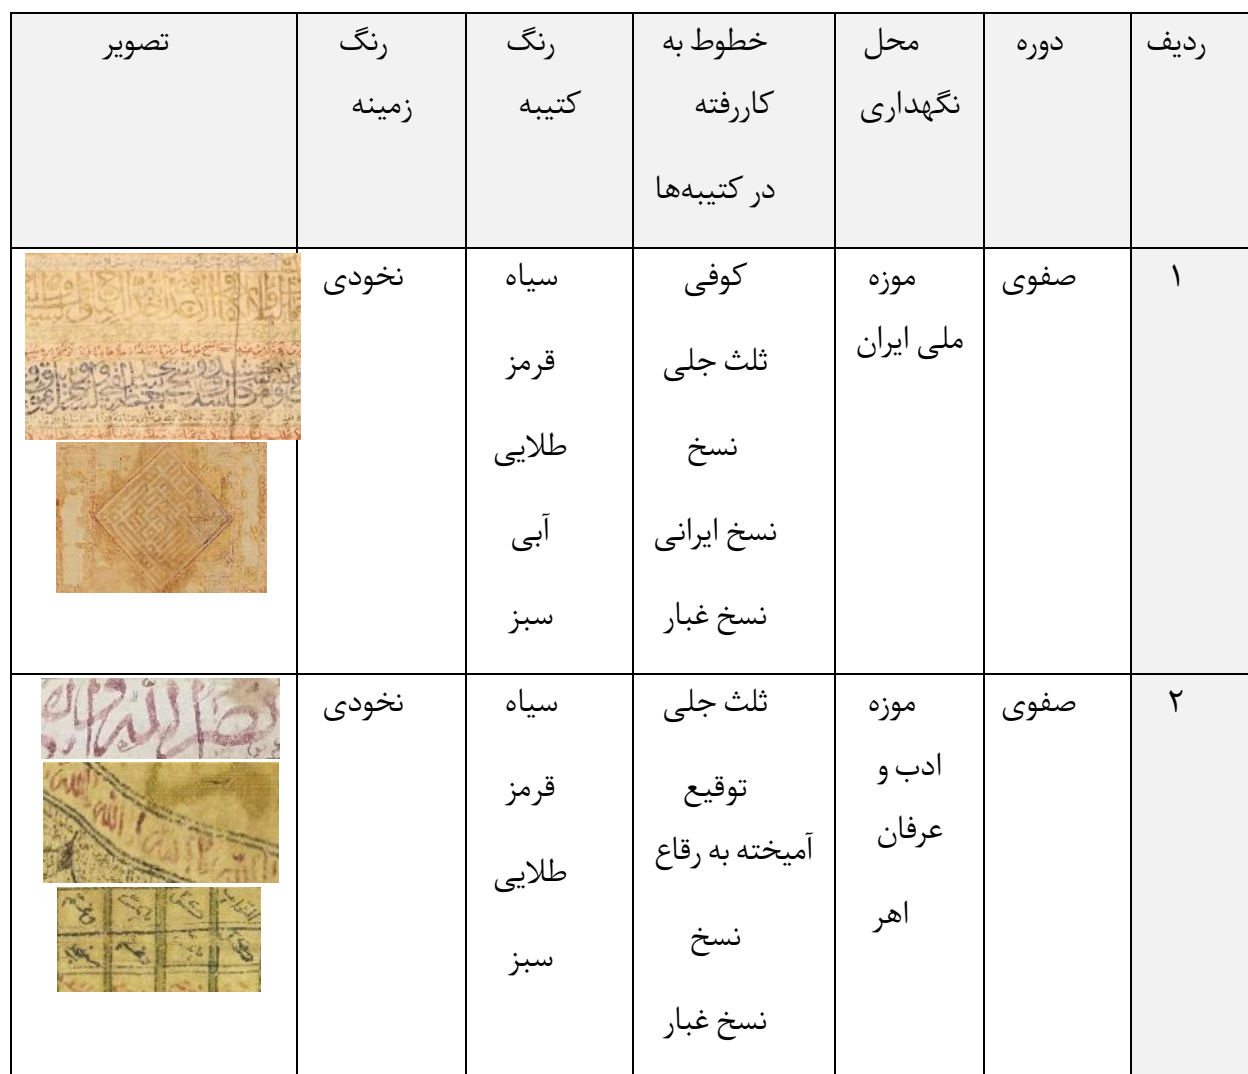 ردیف
دوره
محل
نگهداری
خطوط به
کاررفته
در کتیبه‌ها
رنگ
کتیبه
رنگ
زمینه
تصویر
۱
صفوی
موزه
ملی ایران
کوفی
ثلث جلی
نسخ
نسخ ایرانی
نسخ غبار
سیاه
قرمز
طلایی
آبی
سبز
نخودی
۲
صفوی
موزه
ادب و
عرفان
اهر
ثلث جلی
توقیع
آمیخته به رقاع
نسخ
نسخ غبار
سیاه
قرمز
طلایی
سبز
نخودی